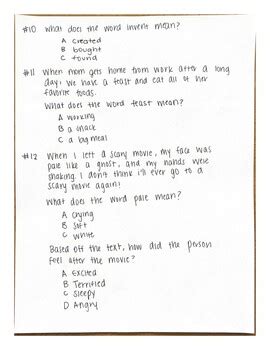 #10 What does the word invent mean?
A created
B bought
C found
#11 When mom gets home from work after a long
day, we have a feast and eat all of her
favorite foods.
What does the word feast mean?
A working
B a snack
C a big meal
#12 When I left a scary movie, my face was
pale like a ghost, and my hands were
shaking. I don't think I'll ever go to a
scary movie again!
What does the word pale mean?
A Crying
B Soft
C White
Based off the text, how did the person
feel after the movie?
A Excited
B Terrified
C Sleepy
D Angry